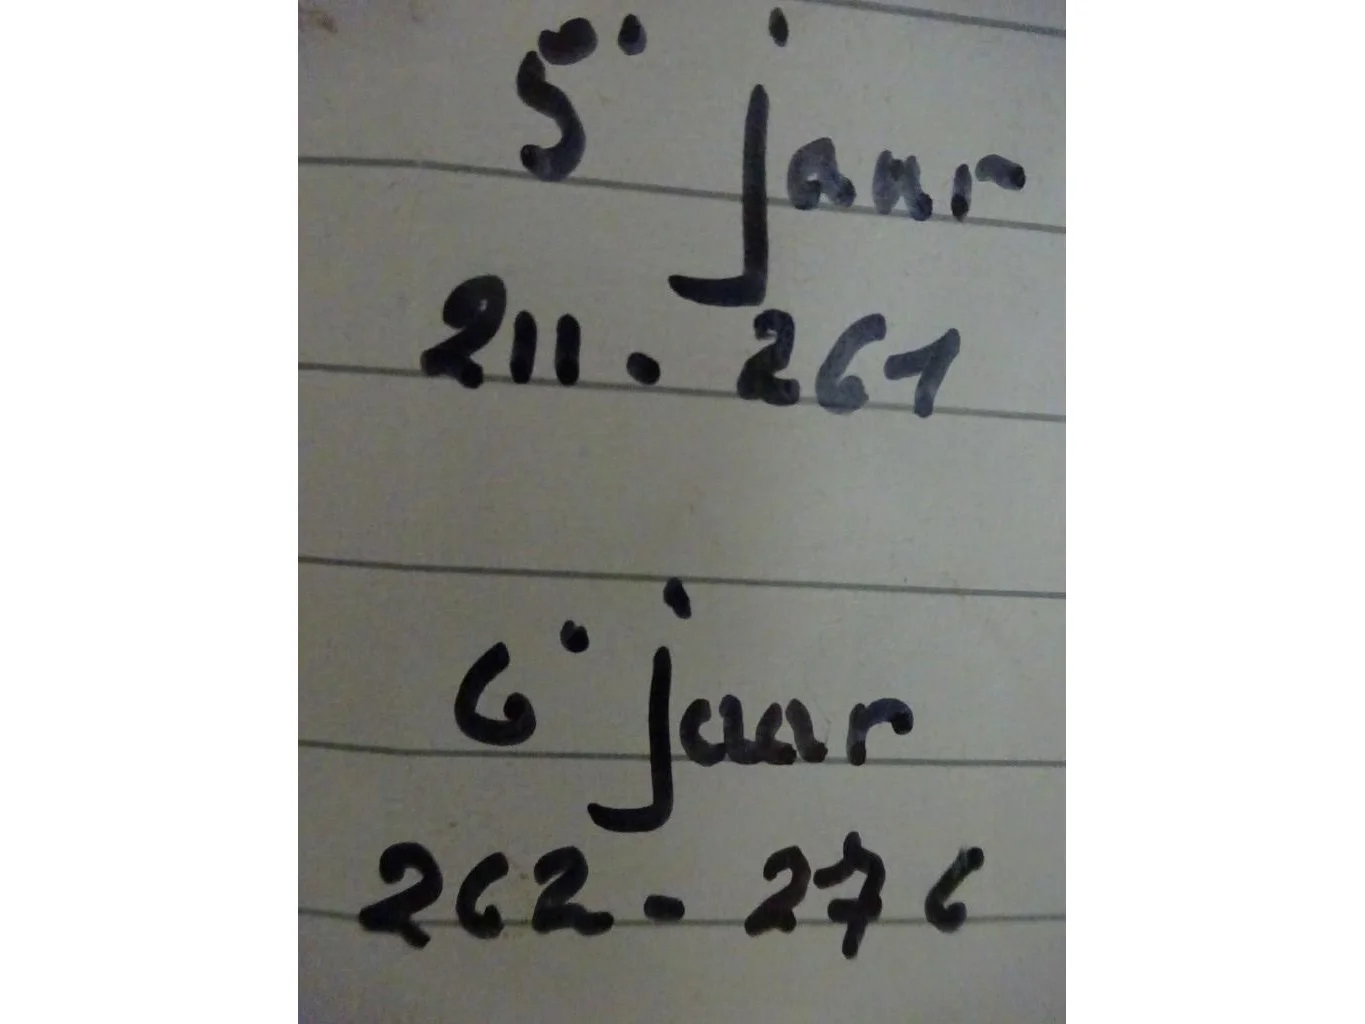 5° jaar
211 - 261
6° jaar
262 - 276